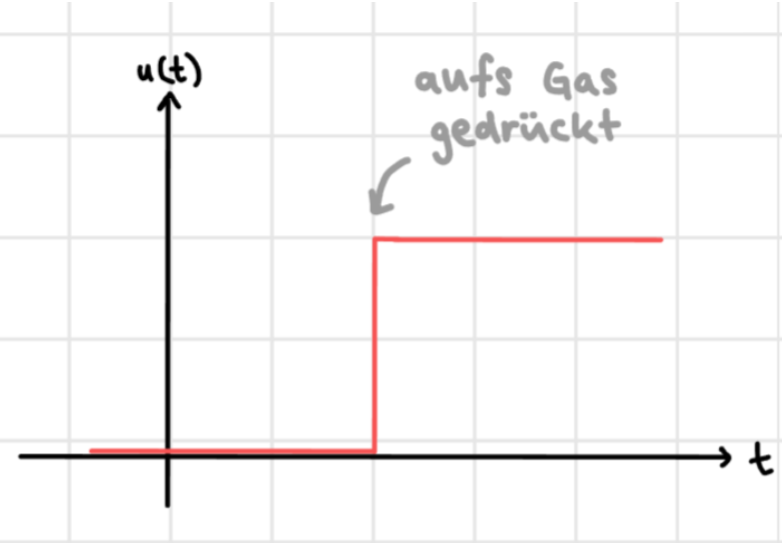 u(t)
aufs Gas
gedrückt
t